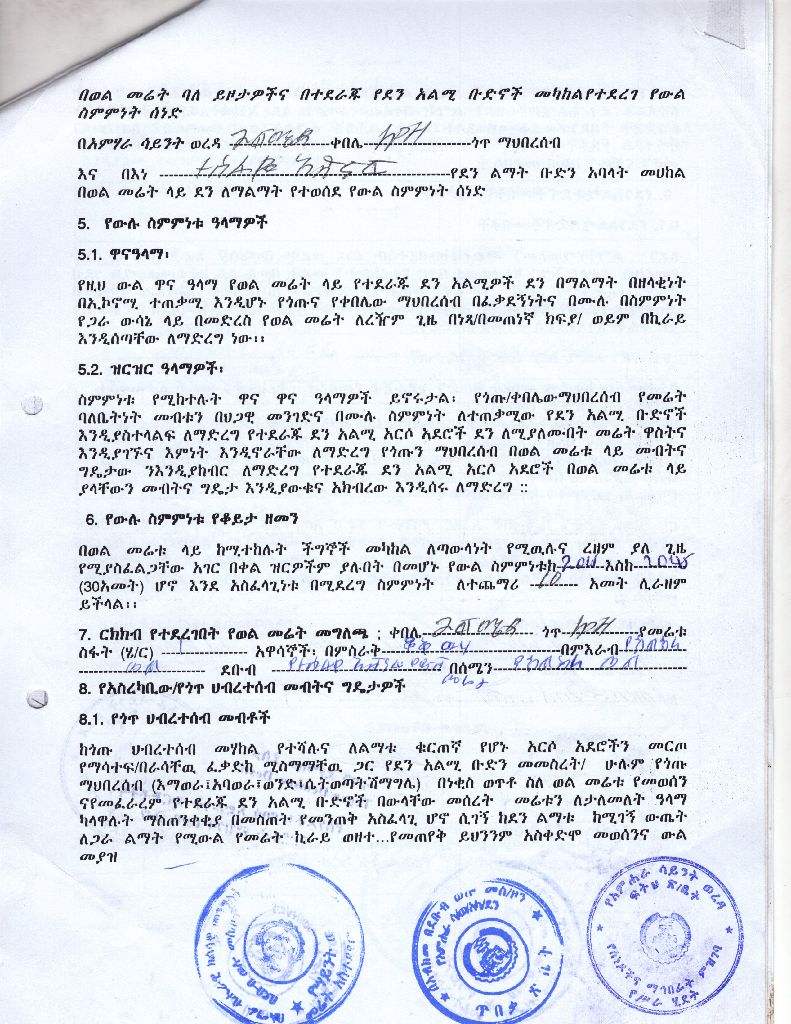 በወል መሬት ባለ ይዞታዎችና በተደራጁ የደን አልሚ ቡድኖች መካከልየተደረገ የውል
ስምምነት ሰነድ
በአምሃራ ሳይንት ወረዳ ቀበሌ ጎጥ ማህበረሰብ
እና በእነ የደን ልማት ቡድን አባላት መሀከል
በወል መሬት ላይ ደን ለማልማት የተወሰደ የውል ስምምነት ሰነድ
5. የውሉ ስምምነቱ ዓላማዎች
5.1. ዋናዓላማ፡
የዚህ ውል ዋና ዓላማ የወል መሬት ላይ የተደራጁ ደን አልሚዎች ደን በማልማት በዘላቂነት
በኢኮኖሚ ተጠቃሚ እንዲሆኑ የጎጡና የቀበሌው ማህበረሰብ በፈቃደኝነትና በሙሉ በስምምነት
የጋራ ውሳኔ ላይ በመድረስ የወል መሬት ለረዥም ጊዜ በነጻ/በመጠነኛ ክፍያ/ ወይም በኪራይ
እንዲሰጣቸው ለማድረግ ነው፡፡
5.2. ዝርዝር ዓላማዎች፡
ስምምነቱ የሚከተሉት ዋና ዋና ዓላማዎች ይኖሩታል፡ የጎጡ/ቀበሌውማህበረሰብ የመሬት
ባለቤትነት መብቱን በህጋዊ መንገድና በሙሉ ስምምነት ለተጠቃሚው የደን አልሚ ቡድኖች
እንዲያስተላልፍ ለማድረግ የተደራጁ ደን አልሚ አርሶ አደሮች ደን ለሚያለሙበት መሬት ዋስትና
እንዲያገኙና እምነት እንዲኖራቸው ለማድረግ የጎጡን ማህበረሰብ በወል መሬቱ ላይ መብትና
ግዴታው ንእንዲያከብር ለማድረግ የተደራጁ ደን አልሚ አርሶ አደሮች በወል መሬቱ ላይ
ያላቸውን መብትና ግዴታ እንዲያውቁና አክብረው እንዲሰሩ ለማድረግ ::
6. የውሉ ስምምነቱ የቆይታ ዘመን
በወል መሬቱ ላይ ከሚተከሉት ችግኞች መካከል ለጣውላነት የሚዉሉና ረዘም ያለ ጊዜ
የሚያስፈልጋቸው አገር በቀል ዝርዎችም ያሉበት በመሆኑ የውል ስምምነቱከ እስከ
(30አመት) ሆኖ እንደ አስፈላጊነቱ በሚደረግ ስምምነት ለተጨማሪ 10 አመት ሊራዘም
ይችላል፡፡
7. ርክክብ የተደረገበት የወል መሬት መግለጫ ; ቀበሌ ጎጥ የመሬቱ
ስፋት (ሄ/ር) 1 አዋሳኞች፡ በምስራቅ በምእራብ
ደቡብ በሰሜን
8. የአስረካቢው/የጎጥ ህብረተሰብ መብትና ግዴታዎች
8.1. የጎጥ ህብረተሰብ መብቶች
ከጎጡ ህብረተሰብ መሃከል የተሻሉና ለልማቱ ቁርጠኛ የሆኑ አርሶ አደሮችን መርጦ
የማሳተፍ/በራሳቸዉ ፈቃድከ ሚስማማቸዉ ጋር የደን አልሚ ቡድን መመስረት/ ሁሉም የጎጡ
ማህበረሰብ (እማወራ፣አባወራ፣ወንድ፣ሴትወጣትሽማግሌ) በነቂስ ወጥቶ ስለ ወል መሬቱ የመወሰን
ናየመፈራረም የተደራጁ ደን አልሚ ቡድኖች በውላቸው መሰረት መሬቱን ለታለመለት ዓላማ
ካላዋሉት ማስጠንቀቂያ በመስጠት የመንጠቅ አስፈላጊ ሆኖ ሲገኝ ከደን ልማቱ ከሚገኝ ውጤት
ለጋራ ልማት የሚውል የመሬት ኪራይ ወዘተ...የመጠየቅ ይህንንም አስቀድሞ መወሰንና ውል
መያዝ
የአምሐራ ሳይንት ወረዳ
ፍትህ ጽ/ቤት